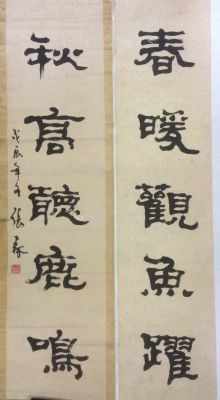 春暖觀魚躍
秋高聽鹿鳴
戊辰年冬張森